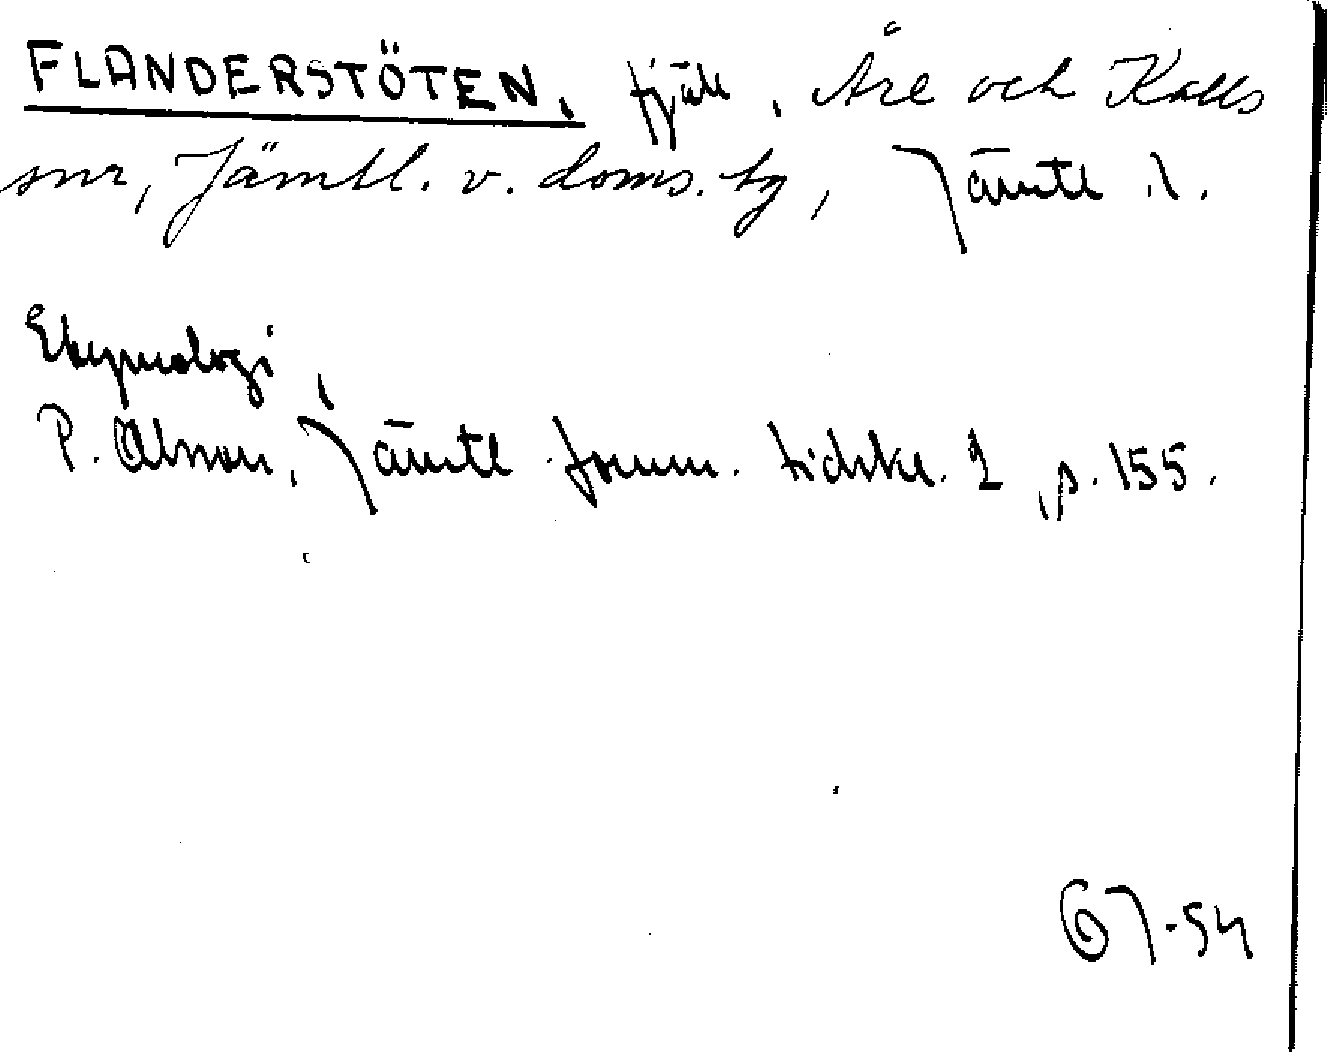 FLANDERSTÖTEN, fjäll, Åre och Kalls
snr, Jämtl. v. doms. tg, Jämtl l.
Etymologi,
P. Olsson, Jämtl fornm. tidskr. 1, p. 155.
67-54